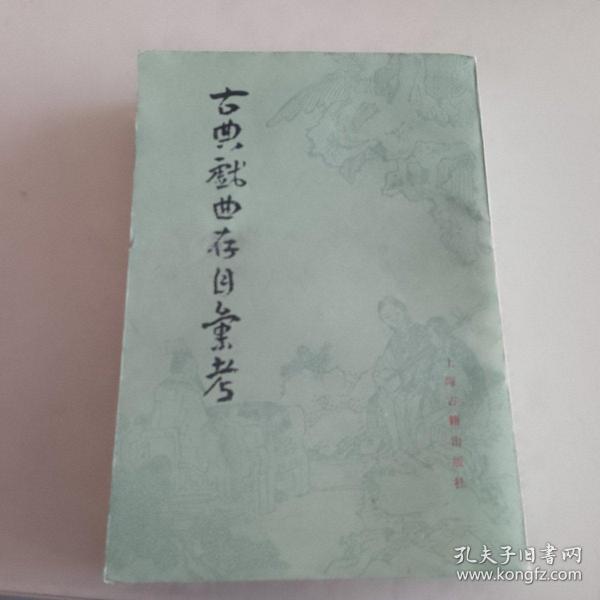 古典戲曲存目彙考
上海古籍出版社
孔夫子旧書网
www.kongfz.com